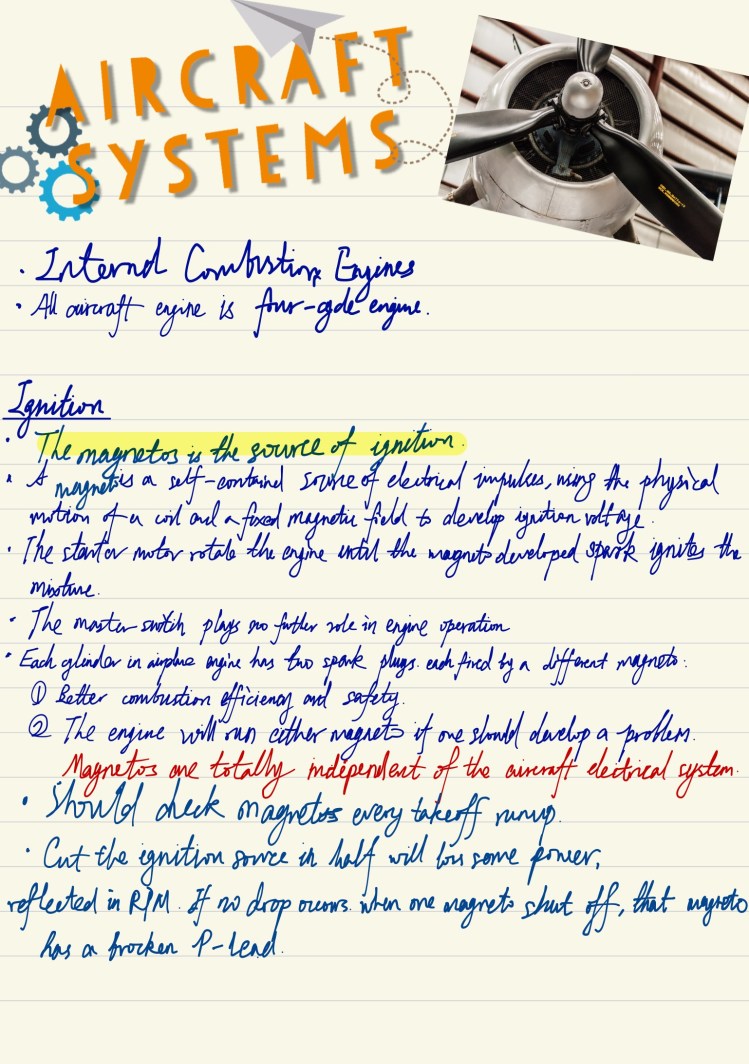 AIRCRAFT
SYSTEMS
· Internal Combustion Engines
· All aircraft engine is four-cycle engine.
Ignition
· The magnetos is the source of ignition.
· A magneto is a self-contained source of electrical impulses, using the physical
motion of a coil and a fixed magnetic field to develop ignition voltage.
· The starter motor rotate the engine until the magneto developed spark ignites the
mixture.
· The master switch plays no further role in engine operation
· Each cylinder in airplane engine has two spark plugs. each fired by a different magneto.
① Better combustion efficiency and safety.
② The engine will run either magneto if one should develop a problem.
Magnetos are totally independent of the aircraft electrical system.
· Should check magnetos every takeoff runup.
· Cut the ignition source in half will loss some power,
reflected in RPM. If no drop occurs when one magneto shut off, that magneto
has a brocken P-lead.